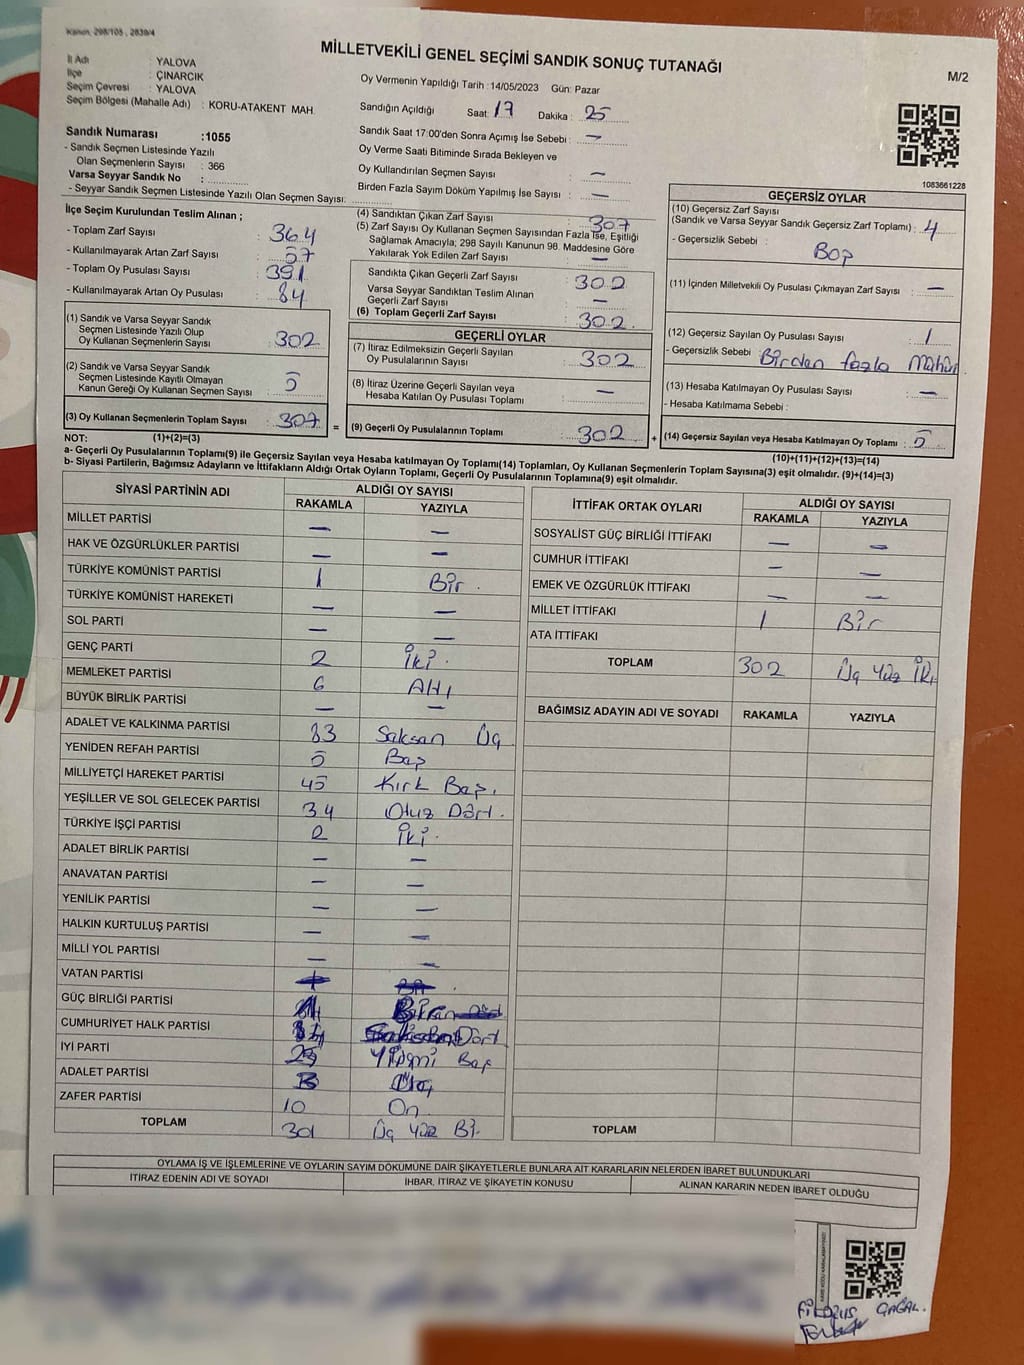 Kanun, 298/105 , 2839/4
MİLLETVEKİLİ GENEL SEÇİMİ SANDIK SONUÇ TUTANAĞI
M/2
İl Adı : YALOVA
İlçe : ÇINARCIK
Seçim Çevresi : YALOVA
Seçim Bölgesi (Mahalle Adı) : KORU-ATAKENT MAH
Sandık Numarası :1055
- Sandık Seçmen Listesinde Yazılı
Olan Seçmenlerin Sayısı : 366
Varsa Seyyar Sandık No :
- Seyyar Sandık Seçmen Listesinde Yazılı Olan Seçmen Sayısı:
Oy Vermenin Yapıldığı Tarih :14/05/2023 Gün: Pazar
Sandığın Açıldığı Saat: 17 Dakika : 25
Sandık Saat 17:00'den Sonra Açımış İse Sebebi : —
Oy Verme Saati Bitiminde Sırada Bekleyen ve
Oy Kullandırılan Seçmen Sayısı : —
Birden Fazla Sayım Döküm Yapılmış İse Sayısı : —
1083661228
İlçe Seçim Kurulundan Teslim Alınan ;
- Toplam Zarf Sayısı : 364
- Kullanılmayarak Artan Zarf Sayısı : 57
- Toplam Oy Pusulası Sayısı : 391
- Kullanılmayarak Artan Oy Pusulası : 84
(1) Sandık ve Varsa Seyyar Sandık
Seçmen Listesinde Yazılı Olup
Oy Kullanan Seçmenlerin Sayısı : 302
(2) Sandık ve Varsa Seyyar Sandık
Seçmen Listesinde Kayıtlı Olmayan
Kanun Gereği Oy Kullanan Seçmen Sayısı : 5
(3) Oy Kullanan Seçmenlerin Toplam Sayısı : 307
(4) Sandıktan Çıkan Zarf Sayısı : 307
(5) Zarf Sayısı Oy Kullanan Seçmen Sayısından Fazla İse, Eşitliği
Sağlamak Amacıyla; 298 Sayılı Kanunun 98. Maddesine Göre
Yakılarak Yok Edilen Zarf Sayısı : —
Sandıkta Çıkan Geçerli Zarf Sayısı : 302
Varsa Seyyar Sandıktan Teslim Alınan
Geçerli Zarf Sayısı : —
(6) Toplam Geçerli Zarf Sayısı : 302.
GEÇERLİ OYLAR
(7) İtiraz Edilmeksizin Geçerli Sayılan
Oy Pusulalarının Sayısı : 302
(8) İtiraz Üzerine Geçerli Sayılan veya
Hesaba Katılan Oy Pusulası Toplamı : —
= (9) Geçerli Oy Pusulalarının Toplamı : 302
GEÇERSİZ OYLAR
(10) Geçersiz Zarf Sayısı
(Sandık ve Varsa Seyyar Sandık Geçersiz Zarf Toplamı) : 4
- Geçersizlik Sebebi : Boş
(11) İçinden Milletvekili Oy Pusulası Çıkmayan Zarf Sayısı : —
(12) Geçersiz Sayılan Oy Pusulası Sayısı : 1
- Geçersizlik Sebebi : Birden fazla Mühür
(13) Hesaba Katılmayan Oy Pusulası Sayısı : —
- Hesaba Katılmama Sebebi :
+ (14) Geçersiz Sayılan veya Hesaba Katılmayan Oy Toplamı : 5
NOT: (1)+(2)=(3)
(10)+(11)+(12)+(13)=(14)
a- Geçerli Oy Pusulalarının Toplamı(9) ile Geçersiz Sayılan veya Hesaba katılmayan Oy Toplamı(14) Toplamları, Oy Kullanan Seçmenlerin Toplam Sayısına(3) eşit olmalıdır. (9)+(14)=(3)
b- Siyasi Partilerin, Bağımsız Adayların ve İttifakların Aldığı Ortak Oyların Toplamı, Geçerli Oy Pusulalarının Toplamına(9) eşit olmalıdır.
SİYASİ PARTİNİN ADI ALDIĞI OY SAYISI
RAKAMLA YAZIYLA
MİLLET PARTİSİ — —
HAK VE ÖZGÜRLÜKLER PARTİSİ — —
TÜRKİYE KOMÜNİST PARTİSİ 1 Bir .
TÜRKİYE KOMÜNİST HAREKETİ — —
SOL PARTİ — —
GENÇ PARTİ 2 İki .
MEMLEKET PARTİSİ 6 Altı
BÜYÜK BİRLİK PARTİSİ — —
ADALET VE KALKINMA PARTİSİ 83 Seksen Üç
YENİDEN REFAH PARTİSİ 5 Beş
MİLLİYETÇİ HAREKET PARTİSİ 45 Kırk Beş.
YEŞİLLER VE SOL GELECEK PARTİSİ 34 Otuz Dört .
TÜRKİYE İŞÇİ PARTİSİ 2 İki .
ADALET BİRLİK PARTİSİ — —
ANAVATAN PARTİSİ — —
YENİLİK PARTİSİ — —
HALKIN KURTULUŞ PARTİSİ — —
MİLLİ YOL PARTİSİ — —
VATAN PARTİSİ
GÜÇ BİRLİĞİ PARTİSİ
CUMHURİYET HALK PARTİSİ Dört
İYİ PARTİ 25 Yirmi Beş
ADALET PARTİSİ
ZAFER PARTİSİ 10 On
TOPLAM 301 Üç Yüz Bir
İTTİFAK ORTAK OYLARI ALDIĞI OY SAYISI
RAKAMLA YAZIYLA
SOSYALİST GÜÇ BİRLİĞİ İTTİFAKI — —
CUMHUR İTTİFAKI — —
EMEK VE ÖZGÜRLÜK İTTİFAKI — —
MİLLET İTTİFAKI 1 Bir
ATA İTTİFAKI
TOPLAM 302 Üç Yüz İki
BAĞIMSIZ ADAYIN ADI VE SOYADI RAKAMLA YAZIYLA
TOPLAM
OYLAMA İŞ VE İŞLEMLERİNE VE OYLARIN SAYIM DÖKÜMÜNE DAİR ŞİKAYETLERLE BUNLARA AİT KARARLARIN NELERDEN İBARET BULUNDUKLARI
İTİRAZ EDENİN ADI VE SOYADI İHBAR, İTİRAZ VE ŞİKAYETİN KONUSU ALINAN KARARIN NEDEN İBARET OLDUĞU